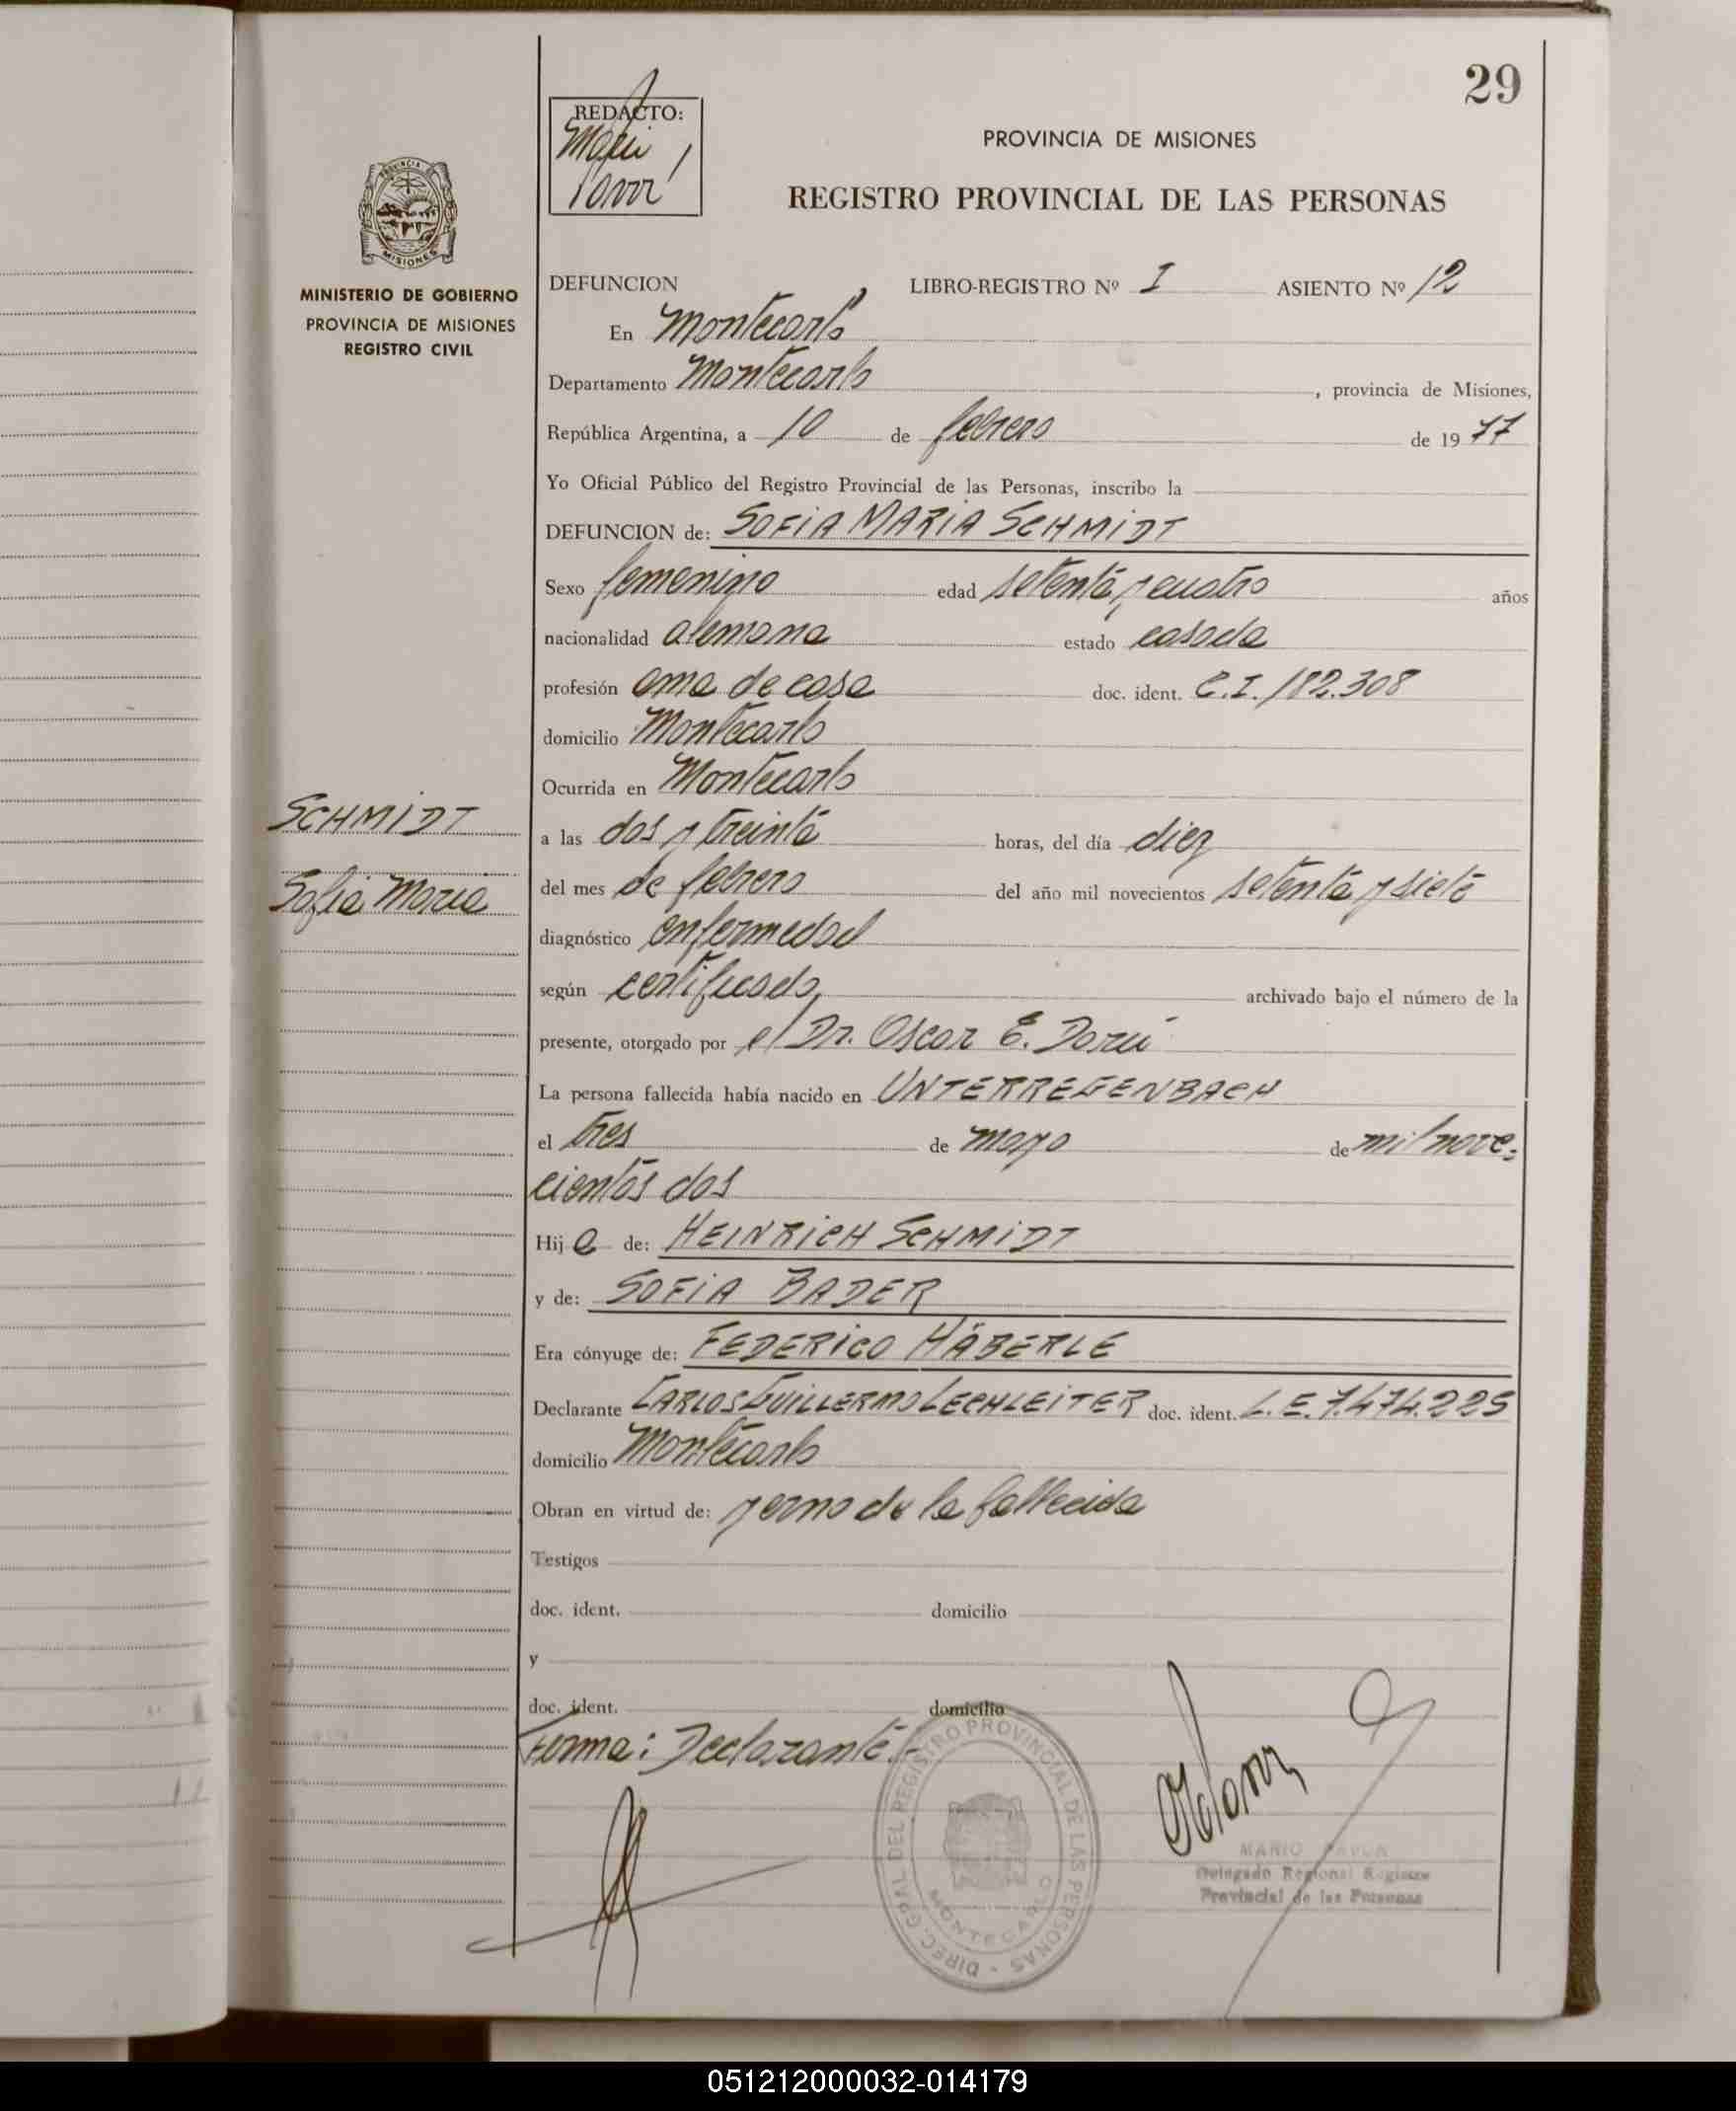 29
REDACTO:
PROVINCIA DE MISIONES
REGISTRO PROVINCIAL DE LAS PERSONAS
PROVINCIA DE
MISIONES
MINISTERIO DE GOBIERNO
PROVINCIA DE MISIONES
REGISTRO CIVIL
DEFUNCION LIBRO-REGISTRO Nº I ASIENTO Nº 12
En Montecarlo
Departamento Montecarlo, provincia de Misiones,
República Argentina, a 10 de febrero de 1977
Yo Oficial Público del Registro Provincial de las Personas, inscribo la
DEFUNCION de: SOFIA MARIA SCHMIDT
Sexo femenino edad setenta y cuatro años
nacionalidad alemana estado casada
profesión ama de casa doc. ident. C.I. 182.308
domicilio Montecarlo
Ocurrida en Montecarlo
SCHMIDT
Sofia Maria
a las dos y treinta horas, del día diez
del mes de febrero del año mil novecientos setenta y siete
diagnóstico enfermedad
según certificado, archivado bajo el número de la
presente, otorgado por el Dr. Oscar E. Dorú
La persona fallecida había nacido en UNTERREGENBACH
el tres de mayo de mil nove-
cientos dos
Hija de: HEINRICH SCHMIDT
y de: SOFIA BADER
Era cónyuge de: FEDERICO HÄBERLE
Declarante CARLOS GUILLERMO LECHLEITER doc. ident. L.E. 7.474.225
domicilio Montecarlo
Obran en virtud de: yerno de la fallecida
Testigos
doc. ident. domicilio
y
doc. ident. domicilio
Firma: Declarante.-
DIREC. GRAL. DEL REGISTRO PROVINCIAL DE LAS PERSONAS -
MONTECARLO
MARIO
Delegado Regional Registro
Provincial de las Personas
051212000032-014179